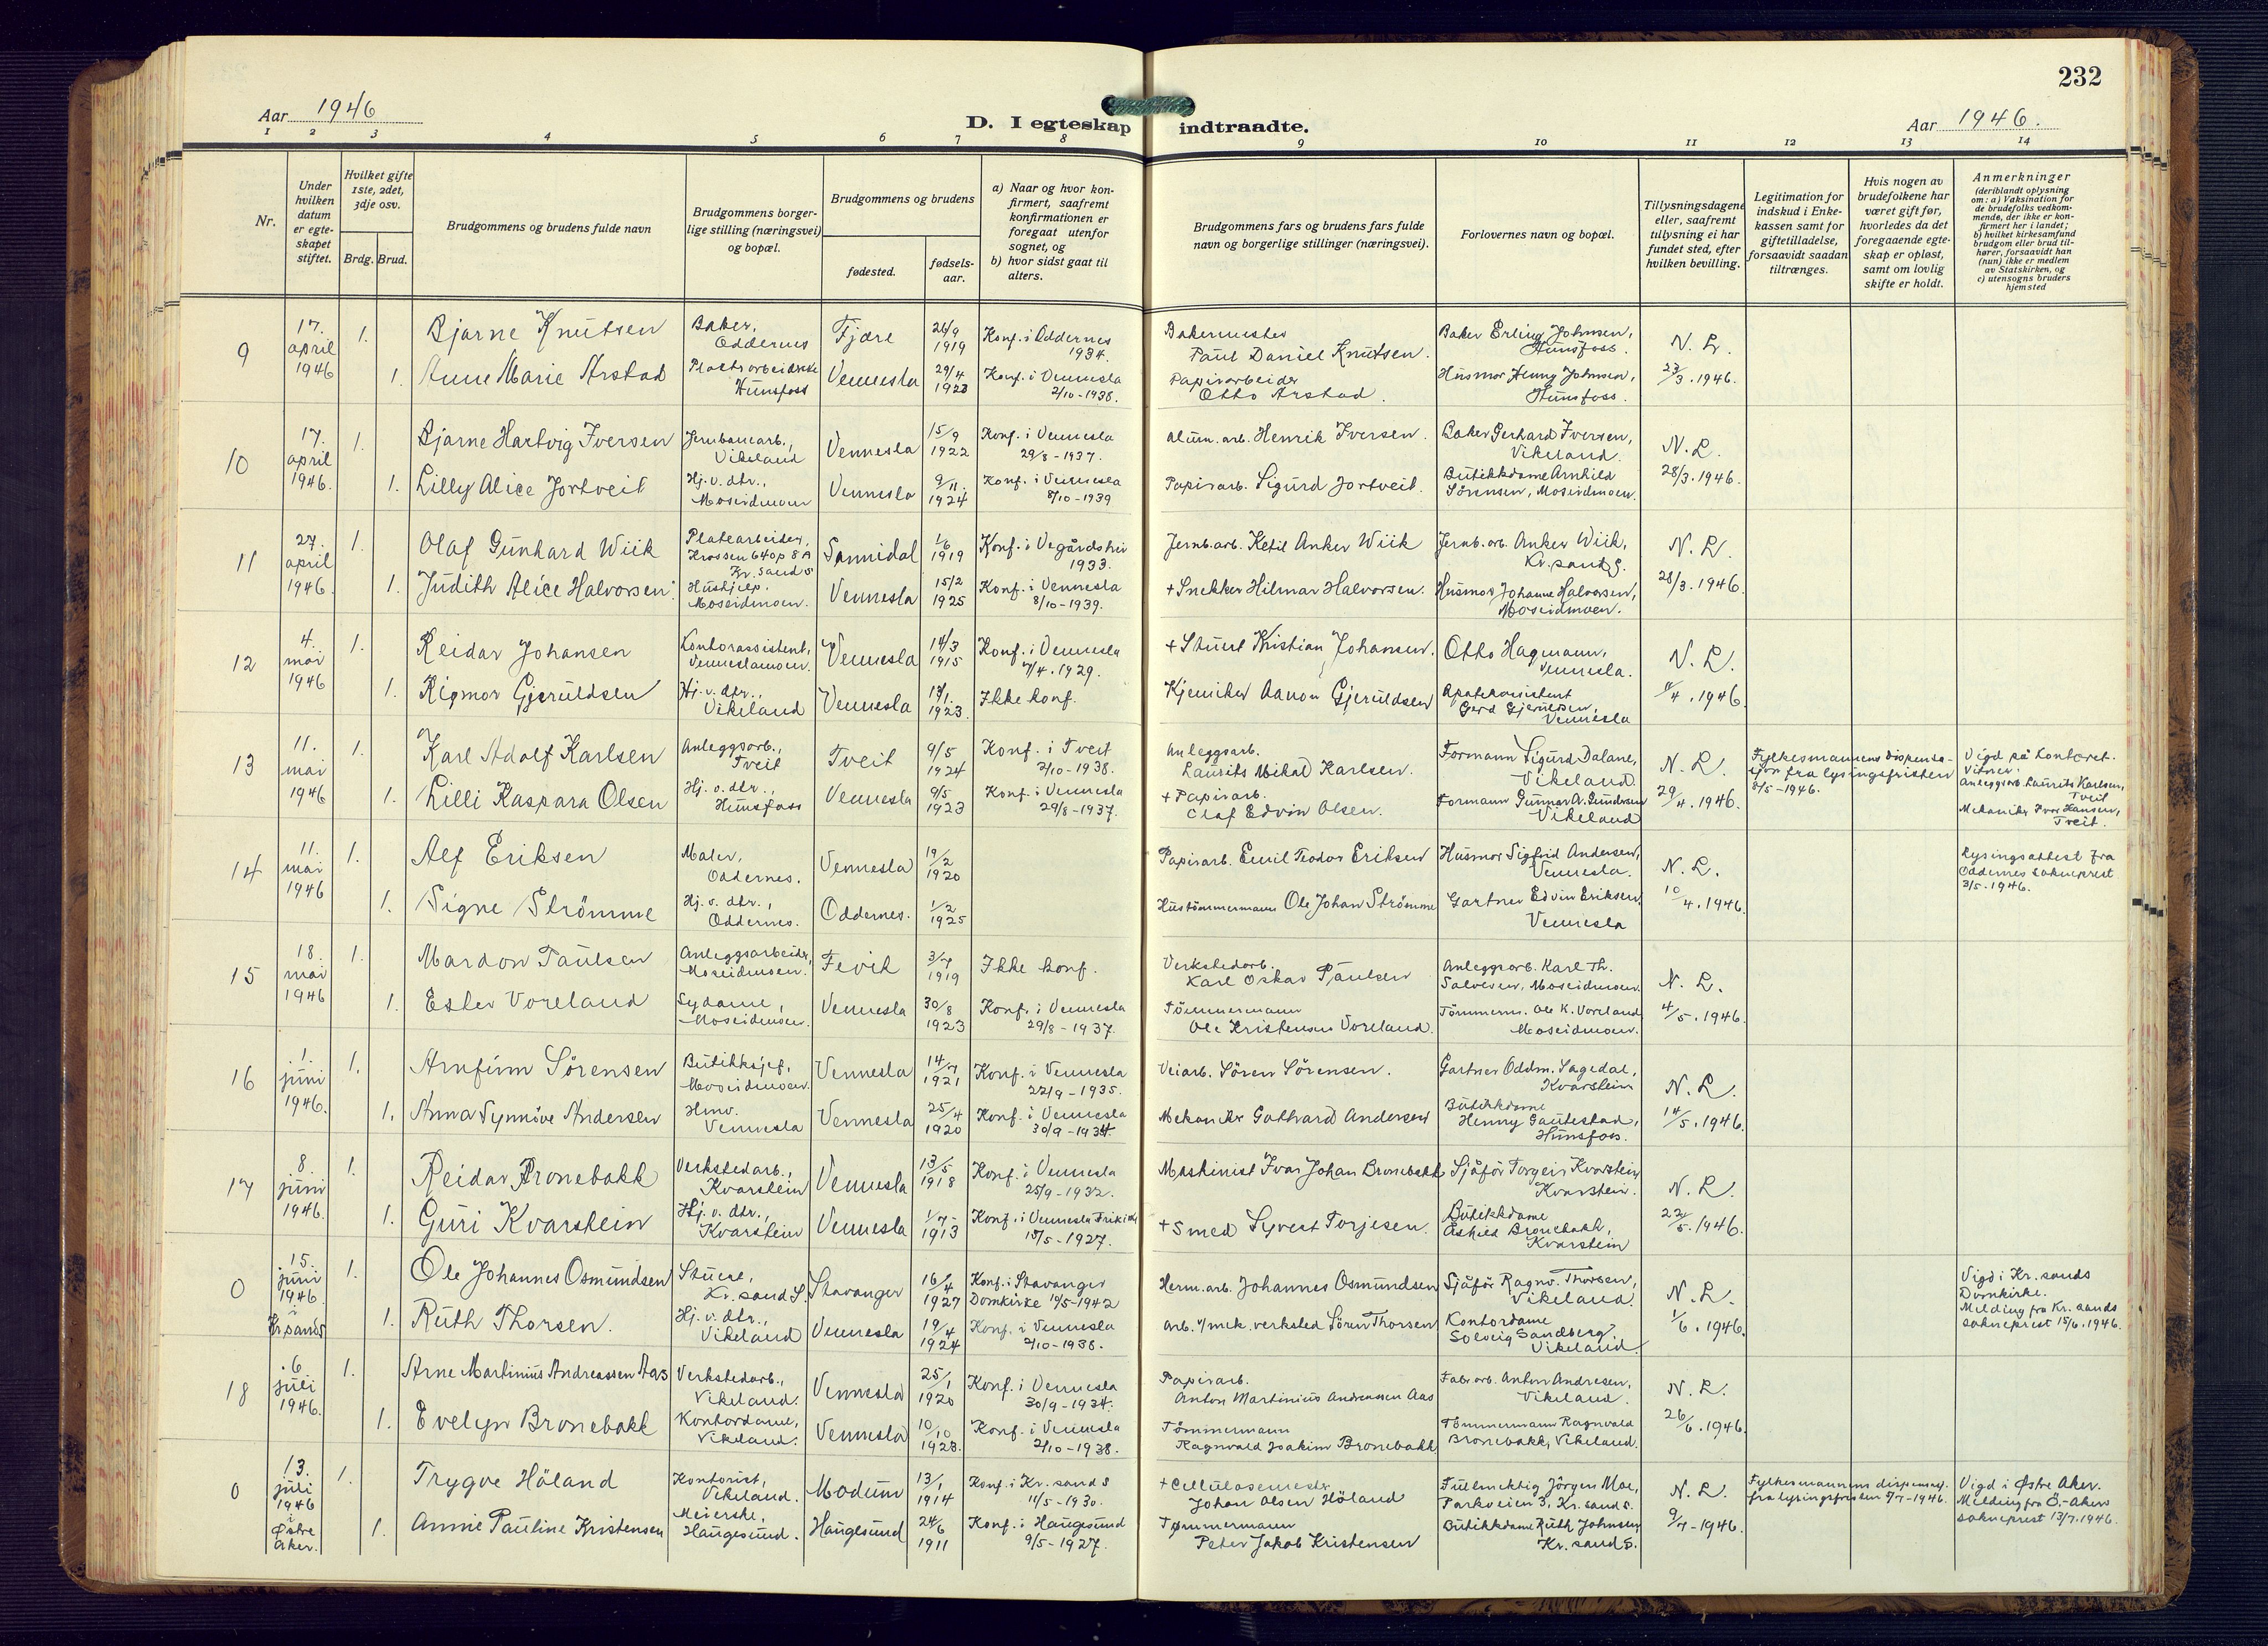 232
Aar 1946
D. I egteskap indtraadte.
Aar 1946.
1 2 3 4 5 6 7 8 9 10 11 12 13 14
Nr.
Under hvilken datum er egteskapet stiftet.
Hvilket gifte 1ste, 2det, 3dje osv.
Brdg. Brud.
Brudgommens og brudens fulde navn
Brudgommens borgerlige stilling (næringsvei) og bopæl.
Brudgommens og brudens
fødested.
fødselsaar.
a) Naar og hvor konfirmert, saafremt konfirmationen er foregaat utenfor sognet, og
b) hvor sidst gaat til alters.
Brudgommens fars og brudens fars fulde navn og borgerlige stillinger (næringsvei).
Forlovernes navn og bopæl.
Tillysningsdagene eller, saafremt tillysning ei har fundet sted, efter hvilken bevilling.
Legitimation for indskud i Enkekassen samt for giftetilladelse, forsaavidt saadan tiltrænges.
Hvis nogen av brudefolkene har været gift før, hvorledes da det foregaaende egteskap er opløst, samt om lovlig skifte er holdt.
Anmerkninger
(deriblandt oplysning om: a) Vaksination for de brudefolks vedkommende, der ikke er konfirmert her i landet; b) hvilket kirkesamfund brudgom eller brud tilhører, forsaavidt han (hun) ikke er medlem av Statskirken, og c) utensogns bruders hjemsted
9 17. april 1946 1. Bjarne Knutsen Baker, Oddernes Fjære 26/9 1919 Konf. i Oddernes 1934. Bakermester Paul Daniel Knutsen. Baker Erling Johnsen, Hunsfoss. N. L.
1. Anne Marie Arstad Hunsfoss Vennesla 29/4 1923 Konf. i Vennesla 2/10-1938. Papirarbeider Otto Arstad. Husmor Henny Johnsen, Hunsfoss. 23/3. 1946.
10 17. april 1946. 1. Bjarne Hartvig Iversen Jernbanearb., Vikeland Vennesla 15/9 1922 Konf. i Vennesla 29/8-1937. Alum. arb. Henrik Iversen. Baker Gerhard Iversen, Vikeland. N. L.
1. Lilly Alice Jortveit Hj. v. dtr., Moseidmoen Vennesla 9/11. 1924 Konf. i Vennesla 8/10-1939 Papirarb. Sigurd Jortveit. Butikkdame Arnhild Sörensen, Moseidmoen. 28/3. 1946.
11 27. april 1946. 1. Olaf Gunhard Wiik Platearbeider, Krossen 640 p 8 A Kr. sand S Sannidal 1/6 1919 Konf. i Vegårdshei 1933. Jernb. arb. Ketil Anker Wiik Jernb. arb. Anker Wiik, Kr. sand S. N. L.
1. Judith Alice Halvorsen Hushjelp. Moseidmoen. Vennesla 15/2 1925 Konf. i Vennesla 8/10-1939. + Snekker Hilmar Halvorsen. Husmor Johanne Halvorsen, Moseidmoen. 28/3. 1946
12 4. mai 1946 1. Reidar Johansen Kontorassistent, Venneslamoen. Vennesla 14/3 1915 Konf. i Vennesla 7/4. 1929. + Stuert Kristian Johansen. Otto Hagmann, Vennesla. N. L.
1. Rigmor Gjeruldsen Hj. v. dtr., Vikeland Vennesla 13/1. 1923. Ikke konf. Kjemiker Aanon Gjeruldsen Gerd Gjeruldsen, Vennesla 4. 1946.
13 11. mai 1946 1. Karl Adolf Karlsen Anleggsarb., Tveit Tveit 9/5 1924 Konf. i Tveit 2/10-1938. Anleggsarb. Laurits Mikal Karlsen. Formann Sigurd Dalane, Vikeland. N. L. Fylkesmannens dispensasjon fra lysingsfristen 8/5-1946. Vigd på kontoret. Vitner: Anleggsarb. Laurits Karlsen, Tveit Mekaniker Ivar Hansen, Tveit.
1. Lilli Kaspara Olsen Hj. v. dtr., Hunsfoss Vennesla 9/5 1923 Konf. i Vennesla 29/8-1937. + Papirarb. Olaf Edvin Olsen. Formann Gunnar A. Gundersen Vikeland 29/4. 1946.
14 11. mai 1946 1. Alf Eriksen Maler, Oddernes. Vennesla 19/2 1920 Papirarb. Emil Teodor Eriksen Husmor Sigfrid Andersen, Vennesla. N. L. Lysingsattest fra Oddernes sokneprest 3/5. 1946.
1. Signe Strömme Hj. v. dtr., Oddernes. Oddernes. 1/2 1925 Hustömmermann Ole Johan Strömme Gartner Edvin Eriksen, Vennesla 10/4. 1946.
15 18. mai 1946 1. Mardon Paulsen Anleggsarbeider, Moseidmoen. Fevik 3/7 1919 Ikke konf. Verkstedarb. Karl Oskar Paulsen Anleggsarb. Karl Th. Salvesen, Moseidmoen. N. L.
1. Ester Voreland Sydame, Moseidmoen. Vennesla 30/8 1923 Konf. i Vennesla 29/8-1937. Tömmermann Ole Kristensen Voreland. Tömmerm. Ole K. Voreland Moseidmoen. 4/5. 1946.
16 1. juni 1946. 1. Arnfinn Sörensen Butikksjef, Moseidmoen. Vennesla 14/7 1921 Konf. i Vennesla 22/9-1935. Veiarb. Sören Sörensen. Gartner Oddm. Sagedal, Kvarstein N. L.
1. Anna Synnöve Andersen Hmv. Vennesla Vennesla 25/4 1920 Konf. i Vennesla 30/9-1934. Mekaniker Gothard Andersen Butikkdame Henny Gautestad, Hunsfoss. 14/5. 1946.
17 8. juni 1946. 1. Reidar Bronebakk Verkstedarb., Kvarstein Vennesla 13/5 1918 Konf. i Vennesla 25/9-1932. Maskinist Ivar Johan Bronebakk Sjåför Torgeir Kvarstein Kvarstein. N. L.
1. Guri Kvarstein Hj. v. dtr., Kvarstein Vennesla 1/7 1913 Konf. i Vennesla Frikirke 15/5-1927. + Smed Syvert Torjesen. Butikkdame Åshild Bronebakk, Kvarstein 22/5. 1946.
0 15. juni 1946. i Kr.sand S 1. Ole Johannes Osmundsen Stuert, Kr. sand S. Stavanger 16/4 1927 Konf. i Stavanger Domkirke 10/5-1942 Herm. arb. Johannes Osmundsen Sjåför Ragnv. Thorsen, Vikeland. N. L. Vigd i Kr. sands Domkirke. Melding fra Kr. sands sokneprest 15/6. 1946.
1. Ruth Thorsen. Hj. v. dtr., Vikeland Vennesla 19/4 1924 Konf. i Vennesla 2/10-1938. Arb. v/ mek. verksted Sören Thorsen Kontordame Solveig Sandberg Vikeland. 1/6. 1946.
18 6. juli 1946. 1. Arne Martinius Andreassen Aas Verkstedarb., Vikeland. Vennesla 25/1 1920 Konf. i Vennesla 30/9-1934. Papirarb. Anton Martinius Andreassen Aas Fabr. arb. Anton Andresen, Vikeland. N. L.
1. Evelyn Bronebakk Kontordame, Vikeland. Vennesla 10/10 1923. Konf. i Vennesla 2/10-1938. Tömmermann Ragnvald Joakim Bronebakk Tömmermann Ragnvald Bronebakk, Vikeland. 26/6. 1946.
0 13. juli 1946 i Østre Aker. 1. Trygve Höland Kontorist, Vikeland. Modum 13/1 1914 Konf. i Kr. sand S 11/5-1930. + Cellulosemester Johan Olsen Höland Fullmektig Jörgen Moe, Parkveien 3, Kr. sand S. N. L. Fylkesmannens dispensasj. fra lysingsfristen 9/7-1946. Vigd i Østre Aker. Melding fra Ö. Akers sokneprest 13/7. 1946.
1. Annie Pauline Kristensen Meierske, Haugesund. Haugesund 24/6 1911 Konf. i Haugesund 9/5-1927. Tømmermann Peter Jakob Kristensen Butikkdame Ruth Johnsen Kr. sand S. 9/7-1946.